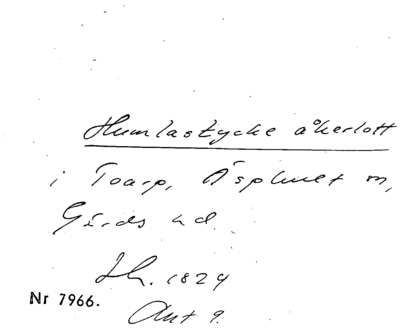 Humlastycke åkerlott
i Toarp, Äsphult sn,
Gärds hd.
Lh. 1824
Nr 7966.
Akt 9.